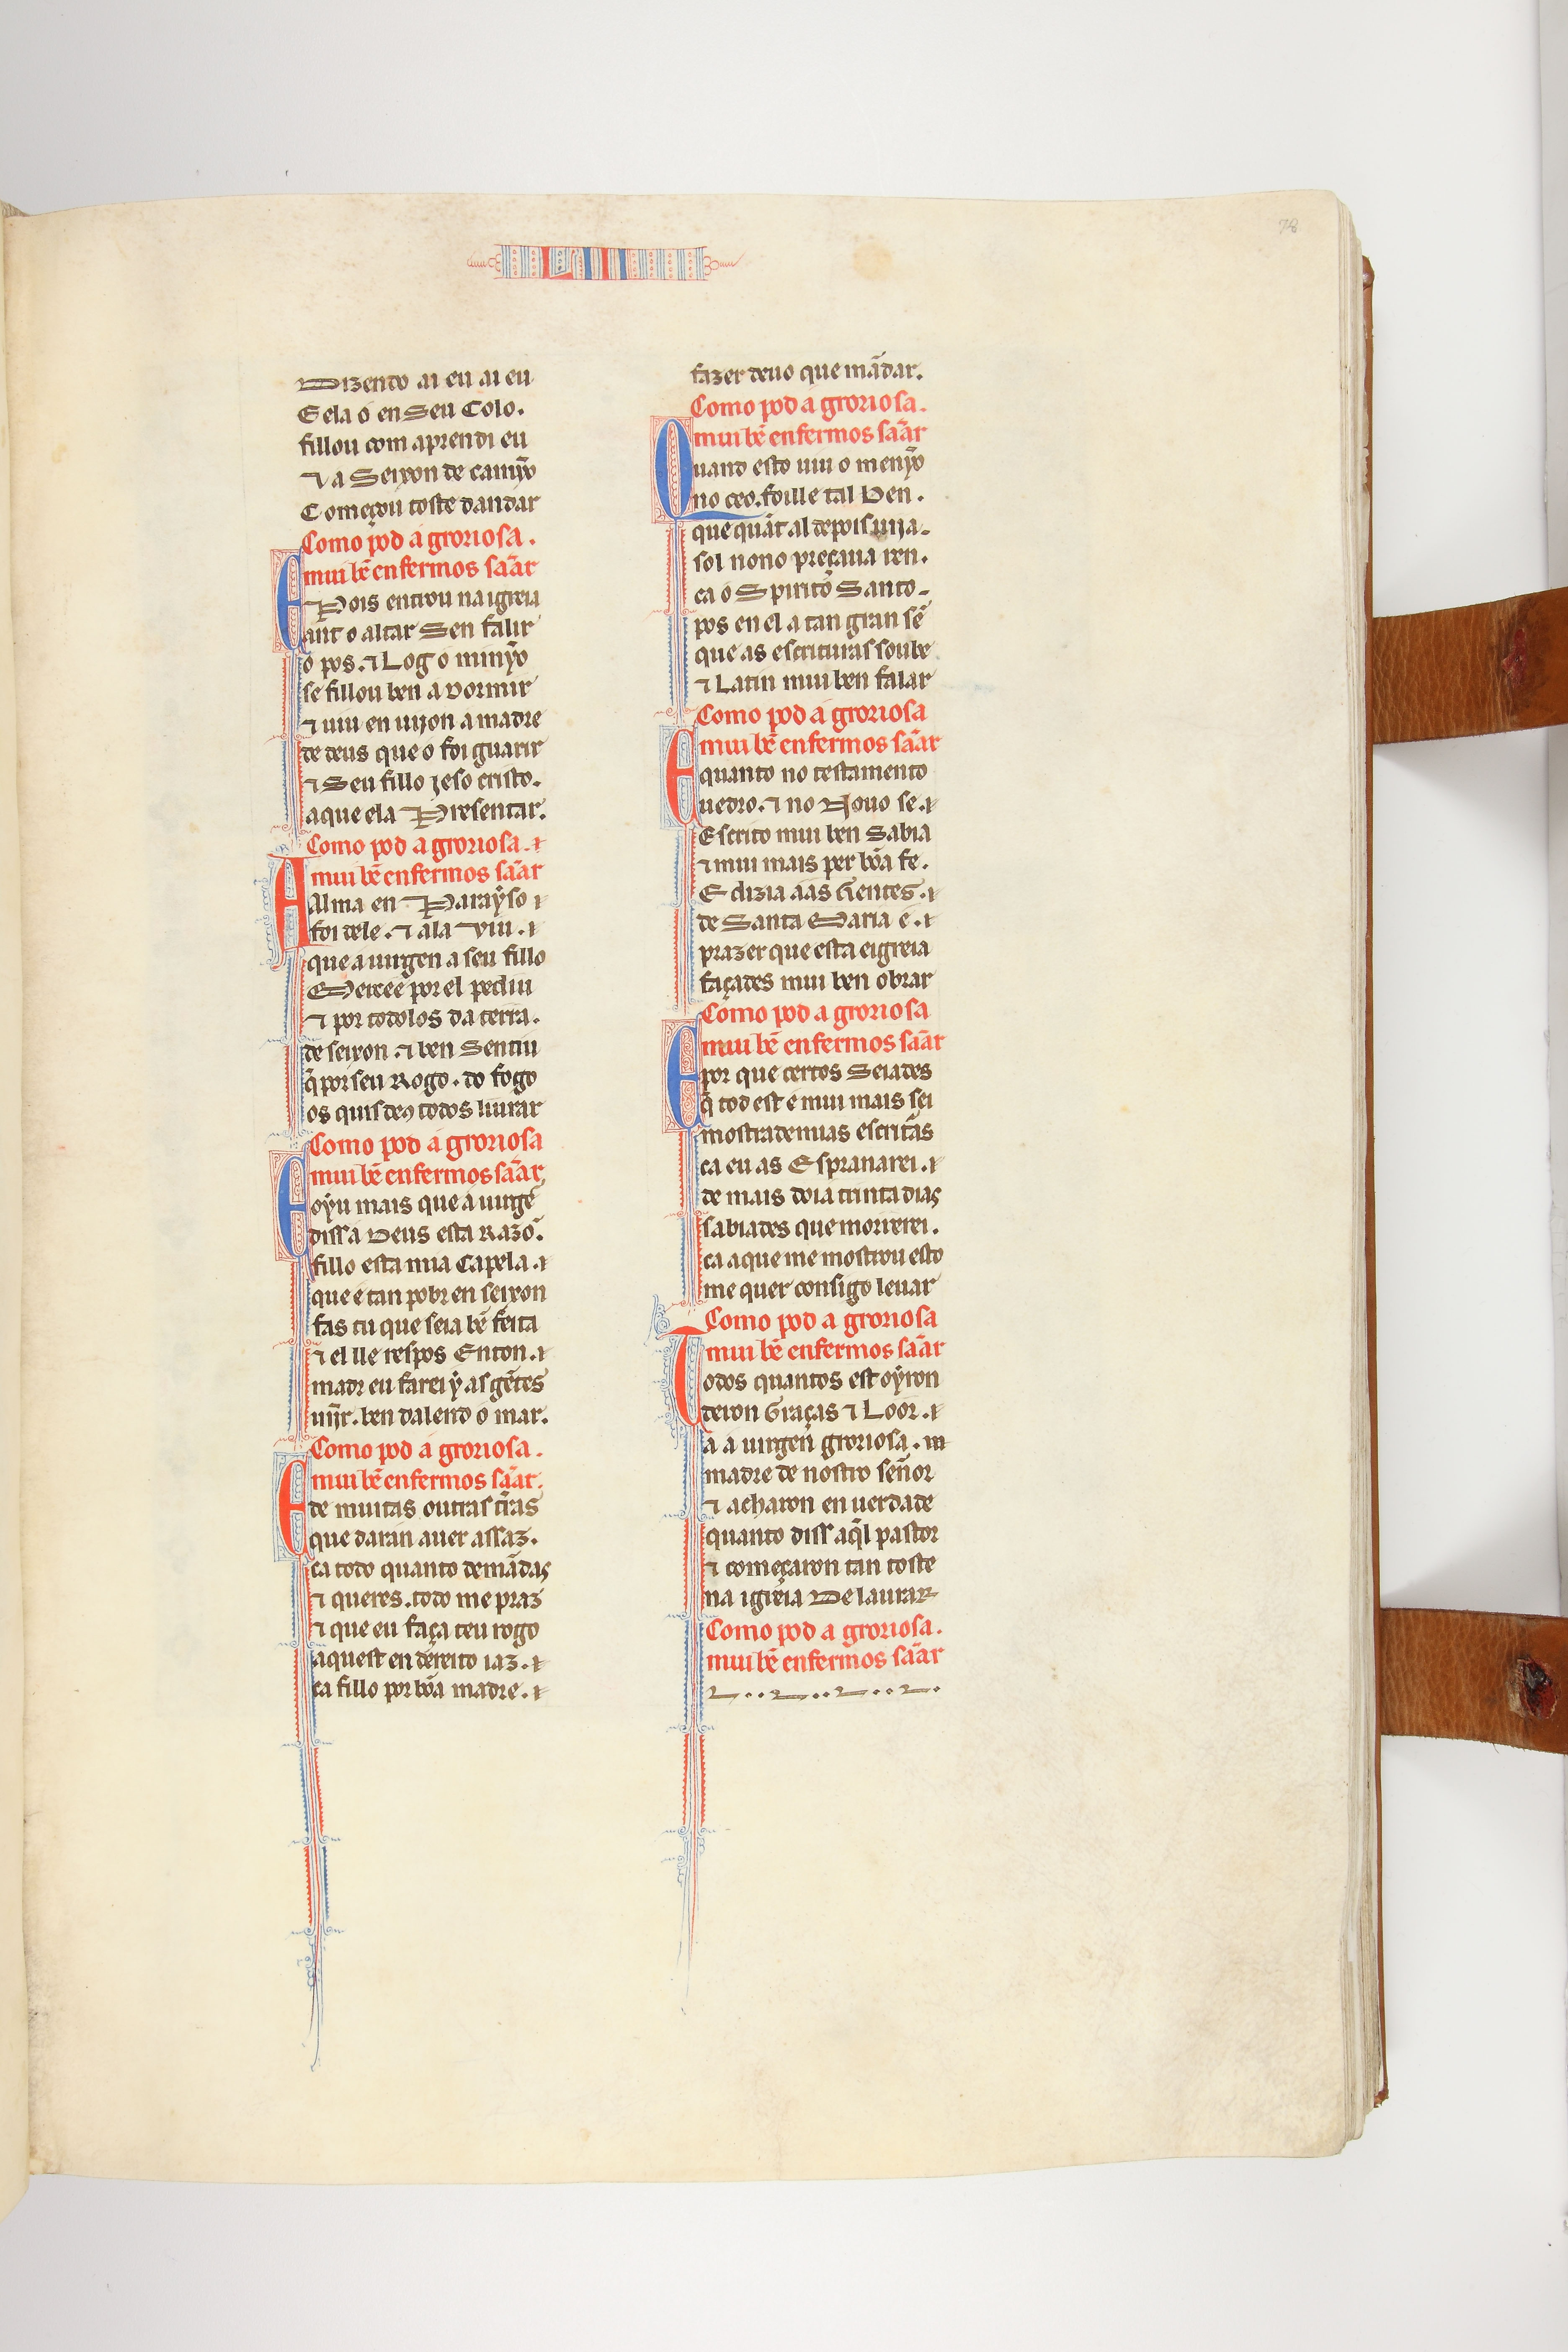 LIII
78
Dizendo ai eu ai eu
E ela o en Seu Colo.
fillou com aprendi eu
⁊ a Seixon de camỹo
Começou toste dandar
Como pod a groriosa.
mui bẽ enfermos sãar
E Pois entrou na igreia
ant o altar Sen falir
o pos. ⁊ Log o minỹo
se fillou ben a dormir
⁊ uiu en uijon a madre
de deus que o foi guarir
⁊ Seu fillo jeso cristo.
a que ela Presentar.
Como pod a groriosa.
mui bẽ enfermos sãar
A Alma en Paraỹso
foi dele. ⁊ ala Viu.
que a uirgen a seu fillo
Mercee por el pediu
⁊ por todolos da terra.
de seixon. ⁊ ben Sentiu
q̃ por seu Rogo. do fogo
os quis deꝰ todos liurar
Como pod a groriosa
mui bẽ enfermos sãar
E oỹu mais que a uirgẽ
diss a Deus esta Razõ.
fillo esta mia Capela.
que e tan pobr en seixon
fas tu que seia bẽ feita
⁊ el lle respos Enton.
madr eu farei ỹ as gẽtes
uĩjr. ben dalend o mar.
Como pod a groriosa.
mui bẽ enfermos sãar.
E de muitas outras t̃ras
que daran auer assaz.
ca todo quanto demãdas
⁊ queres. todo me praz
⁊ que eu faça teu rogo
aquest en dereito iaz.
ca fillo por bõa madre.
fazer deuo que mãdar.
Como pod a groriosa.
mui bẽ enfermos sãar
Quand esto uiu o menỹo
no ceo. foille tal Ben.
que quãt al depois uija.
sol nono preçaua ren.
ca o Spirito Santo.
pos en el a tan gran sẽ
que as escrituras soube
⁊ Latin mui ben falar
Como pod a groriosa
mui bẽ enfermos sãar
E quanto no testamento
uedro. ⁊ no Nouo se.
Escrito mui ben Sabia
⁊ mui mais per bõa fe.
E dizia aas Gentes.
de Santa Maria e.
prazer que esta eigreia
façades mui ben obrar
Como pod a groriosa
mui bẽ enfermos sãar
E por que certos Seiades
q̃ tod est e mui mais sei
mostrademias escritãs
ca eu as Espranarei.
de mais doia trinta dias
sabiades que morrerei.
ca a que me mostrou esto
me quer consigo leuar
Como pod a groriosa
mui bẽ enfermos sãar
Todos quantos est oỹron
deron Graças ⁊ Loor.
a a uirgen groriosa. m
madre de nostro señor
⁊ acharon en uerdade
quanto diss aq̃l pastor
⁊ começaron tan toste
na igreia De laurar
Como pod a groriosa.
mui bẽ enfermos sãar